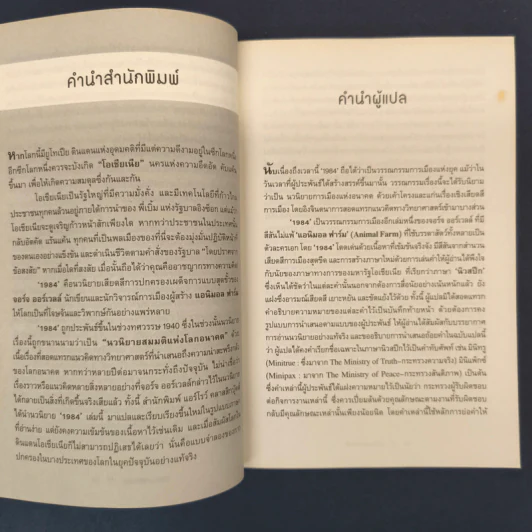 คำนำสำนักพิมพ์
หากโลกนี้มียูโทเปีย ดินแดนแห่งอุดมคติที่มีแต่ความดีงามอยู่ในซีกโลกหนึ่ง
อีกซีกโลกหนึ่งควรจะบังเกิด "โอเชียเนีย" นครแห่งความอึดอัด
ขึ้นมา เพื่อให้เกิดความสมดุลซึ่งกันและกัน
โอเชียเนียเป็นรัฐใหญ่ที่มีความมั่งคั่ง และมีเทคโนโลยีที่ก้าว
ประชาชนทุกคนล้วนอยู่ภายใต้การนำของ พี่เบิ้ม แห่งรัฐบาลอิงซ็อก
โอเชียเนียจะดูเจริญก้าวหน้าสักเพียงใด หากทว่าประชาชนใน
กลับอัตคัด แร้นแค้น ทุกคนที่เป็นพลเมืองของที่นี่จะต้องมุ่งมั่นปฏิบัติหน้าที่
ของตนเองอย่างแข็งขัน และดำเนินชีวิตตามคำสั่งของรัฐบาล "โดยปราศจาก
ข้อสงสัย" หากเมื่อใดที่สงสัย เมื่อนั้นถือได้ว่าคุณคืออาชญากรทางความคิด
'1984' คือนวนิยายเสียดสีการปกครองเผด็จการแบบสุดขั้วของ
จอร์จ ออร์เวลล์ นักเขียนและนักวิจารณ์การเมืองผู้สร้าง แอนิมอล ฟาร์ม
ให้โลกเป็นที่โจษจันและวิพากษ์กันอย่างแพร่หลาย
'1984' ถูกประพันธ์ขึ้นในช่วงทศวรรษ 1940 ซึ่งในช่วงนั้นนวนิยาย
เรื่องนี้ถูกขนานนามว่าเป็น "นวนิยายสมมติแห่งโลกอนาคต" ด้วย
เนื้อเรื่องที่สอดแทรกแนวคิดทางวิทยาศาสตร์ที่นำเสนอถึงความน่าสะพรึงกลัว
ของโลกอนาคต หากว่าหลายปีต่อมาจนกระทั่งถึงปัจจุบัน ไม่น่าเชื่อว่า
เรื่องราวหรือแนวคิดหลายสิ่งหลายอย่างที่จอร์จ ออร์เวลล์กล่าวไว้ในนวนิยาย
ได้กลายเป็นสิ่งที่เกิดขึ้นจริงเสียแล้ว ทั้งนี้ สำนักพิมพ์ แอร์โรว์ คลาสสิก
ได้นำนวนิยาย '1984' เล่มนี้ มาแปลและเรียบเรียงขึ้นใหม่ในรูปแบบ
ที่อ่านง่าย แต่ยังคงความเข้มข้นของเนื้อหาไว้เช่นเดิม และเมื่อ
ดินแดนโอเชียเนียก็ไม่สามารถปฏิเสธได้เลยว่า นั่นคือแบบจำลองของการ
ปกครองในบางประเทศของโลกในยุคปัจจุบันอย่างแท้จริง
คำนำผู้แปล
นับเนื่องถึงเวลานี้ '1984' ถือได้ว่าเป็นวรรณกรรมการเมืองแห่งยุค แม้ว่าใน
วันเวลาที่ผู้ประพันธ์ได้สร้างสรรค์ขึ้นมานั้น วรรณกรรมเรื่องนี้จะได้รับนิยาม
ว่าเป็น นวนิยายแห่งอนาคต ด้วยเค้าโครงและแก่นเรื่องเชิงเสียดสี
การเมือง โดยอิงจินตนาการสอดแทรกแนวคิดทางวิทยาศาสตร์เข้ามาบางส่วน
'1984' เป็นวรรณกรรมการเมืองอีกเล่มหนึ่งของจอร์จ ออร์เวลล์ ที่มี
สีสันไม่แพ้ 'แอนิมอล ฟาร์ม' (Animal Farm) ที่ใช้บรรดาสัตว์ทั้งหลายเป็น
ตัวละครเอก โดย '1984' โดดเด่นด้วยเนื้อหาที่เข้มข้นจริงจัง มีสีสันจากการเสียดสี
การเมืองสุดขีด และการสร้างภาษาใหม่ด้วยการเล่นคำให้ผู้อ่านได้พึงใจ
กับนัยของภาษาทางการของมหารัฐโอเชียเนีย ที่เรียกว่าภาษา 'นิวสปีก'
ซึ่งเห็นได้ชัดว่าในแต่ละคำนั้นนอกจากต้องการสื่อนัยอย่างเน้นหนักแล้ว ยัง
แฝงซึ่งอารมณ์เสียดสี เยาะหยัน และขัดแย้งไว้ด้วย ทั้งนี้ ผู้แปลได้สอดแทรก
คำอธิบายความหมายของแต่ละคำไว้เป็นที่ท้ายหน้าด้วย ด้วยต้องการคง
รูปแบบการนำเสนอตามแบบของผู้ประพันธ์ ให้ผู้อ่านได้สัมผัสกับบรรยากาศ
การอ่านนวนิยายอย่างแท้จริง และขออธิบายการนำเสนอถ้อยคำในฉบับแปลนี้
ว่า ผู้แปลได้คงคำเรียกชื่อเฉพาะในภาษานิวสปีกไว้เป็นคำทับศัพท์ เช่น มินิทรู
(Minitrue : ซึ่งมาจาก The Ministry of Truth–กระทรวงความจริง) มินิแพ็กซ์
(Minipax : มาจาก The Ministry of Peace–กระทรวงสันติภาพ) เป็นต้น
ซึ่งคำเหล่านี้ผู้ประพันธ์ได้แฝงความหมายไว้เป็นนัยว่า กระทรวงผู้รับผิดชอบ
ต่อกิจการงานเหล่านี้ ซึ่งควรเปี่ยมล้นด้วยคุณลักษณะตามงานที่รับผิดชอบ
กลับมีคุณลักษณะเหล่านั้นเพียงน้อยนิด โดยคำเหล่านี้ใช้หลักการย่อคำให้